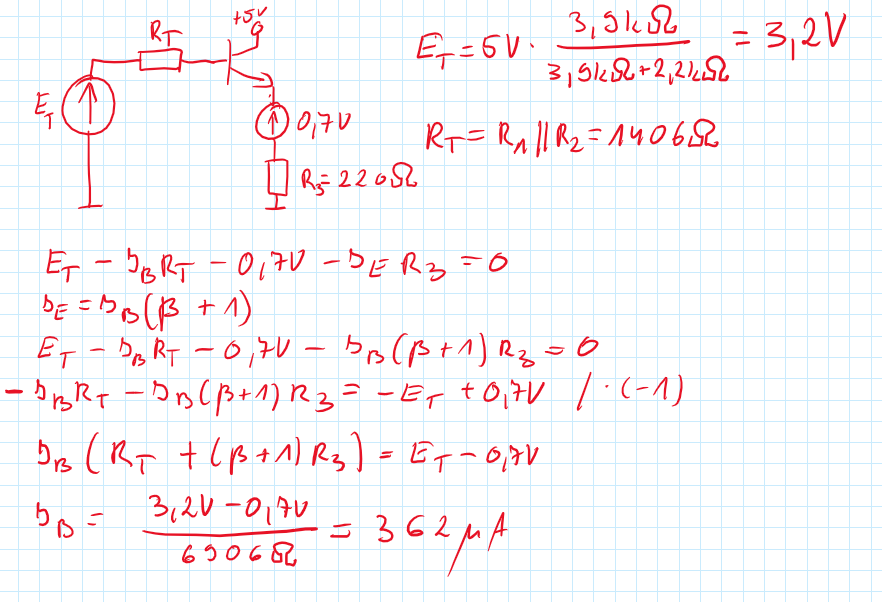 +5V
R_T
E_T = 5V · 3,9kΩ / (3,9kΩ+2,2kΩ) = 3,2V
E_T
0,7V
R_T = R_1 || R_2 = 1406Ω
R_3=220Ω
E_T - I_B R_T - 0,7V - I_E R_3 = 0
I_E = I_B(β + 1)
E_T - I_B R_T - 0,7V - I_B(β+1) R_3 = 0
- I_B R_T - I_B(β+1) R_3 = -E_T + 0,7V / · (-1)
I_B (R_T + (β+1) R_3) = E_T - 0,7V
I_B = (3,2V - 0,7V) / 6906Ω = 362 μA